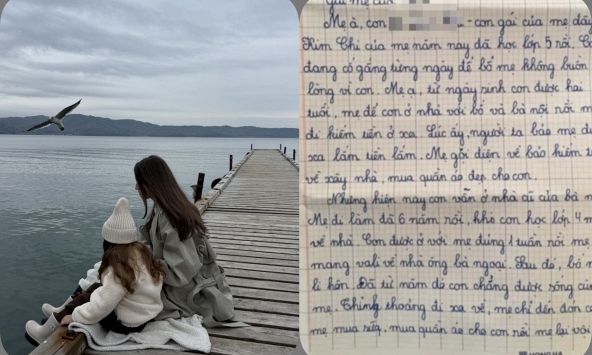 Gửi mẹ của
Mẹ à, con - con gái của mẹ đây
Kim Chi của mẹ năm nay đã học lớp 5 rồi. Co
đang cố gắng từng ngày để bố mẹ không buồn
lòng vì con. Mẹ ạ, từ ngày sinh con được hai
tuổi, mẹ để con ở nhà với bố và bà nội rồi m
đi kiếm tiền ở xa. Lúc ấy, người ta bảo mẹ đi
xa lắm tiền lắm. Mẹ gọi điện về bảo kiếm t
về xây nhà, mua quần áo đẹp cho con.
Nhưng hiện nay con vẫn ở nhà cũ của bà n
Mẹ đi làm đã 6 năm rồi, khi con học lớp 4 m
về nhà. Con được ở với mẹ đúng 1 tuần rồi mẹ
mang vali về nhà ông bà ngoại. Sau đó, bố m
li hôn. Đã từ năm đó con chẳng được sống cùn
mẹ. Thỉnh thoảng đi xa về, mẹ chỉ đến đón co
mẹ mua, mua quần áo cho con rồi mẹ lại với
HONG HA